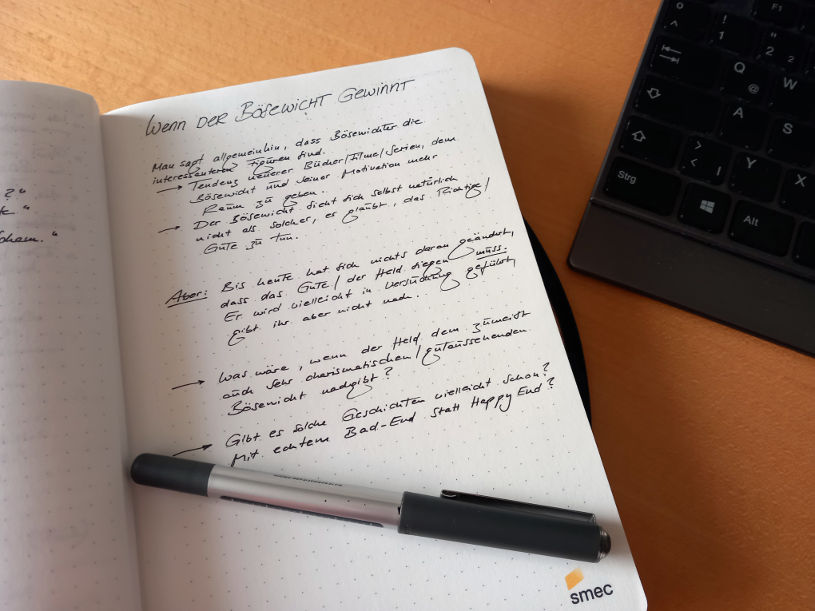 Wenn der Bösewicht Gewinnt
Man sagt allgemeinhin, dass Bösewichter die
interessanteren Figuren sind.
→ Tendenz neuerer Bücher/Filme/Serien, dem
Bösewicht und seiner Motivation mehr
Raum zu geben.
→ Der Bösewicht sieht sich selbst natürlich
nicht als solcher, es glaubt, das Richtige/
Gute zu tun.
Aber: Bis heute hat sich nichts daran geändert,
dass das Gute/ der Held siegen muss.
Er wird vielleicht in Versuchung geführt,
gibt ihr aber nicht nach.
→ Was wäre, wenn der Held dem zumeist
auch sehr charismatischen/gutaussehenden
Bösewicht nachgibt?
→ Gibt es solche Geschichten vielleicht schon?
Mit echtem Bad-End statt Happy End?
smec
O
^
!
1
"
2
F1
Q
@
W
A
S
>
<
|
Y
X
Strg
Alt